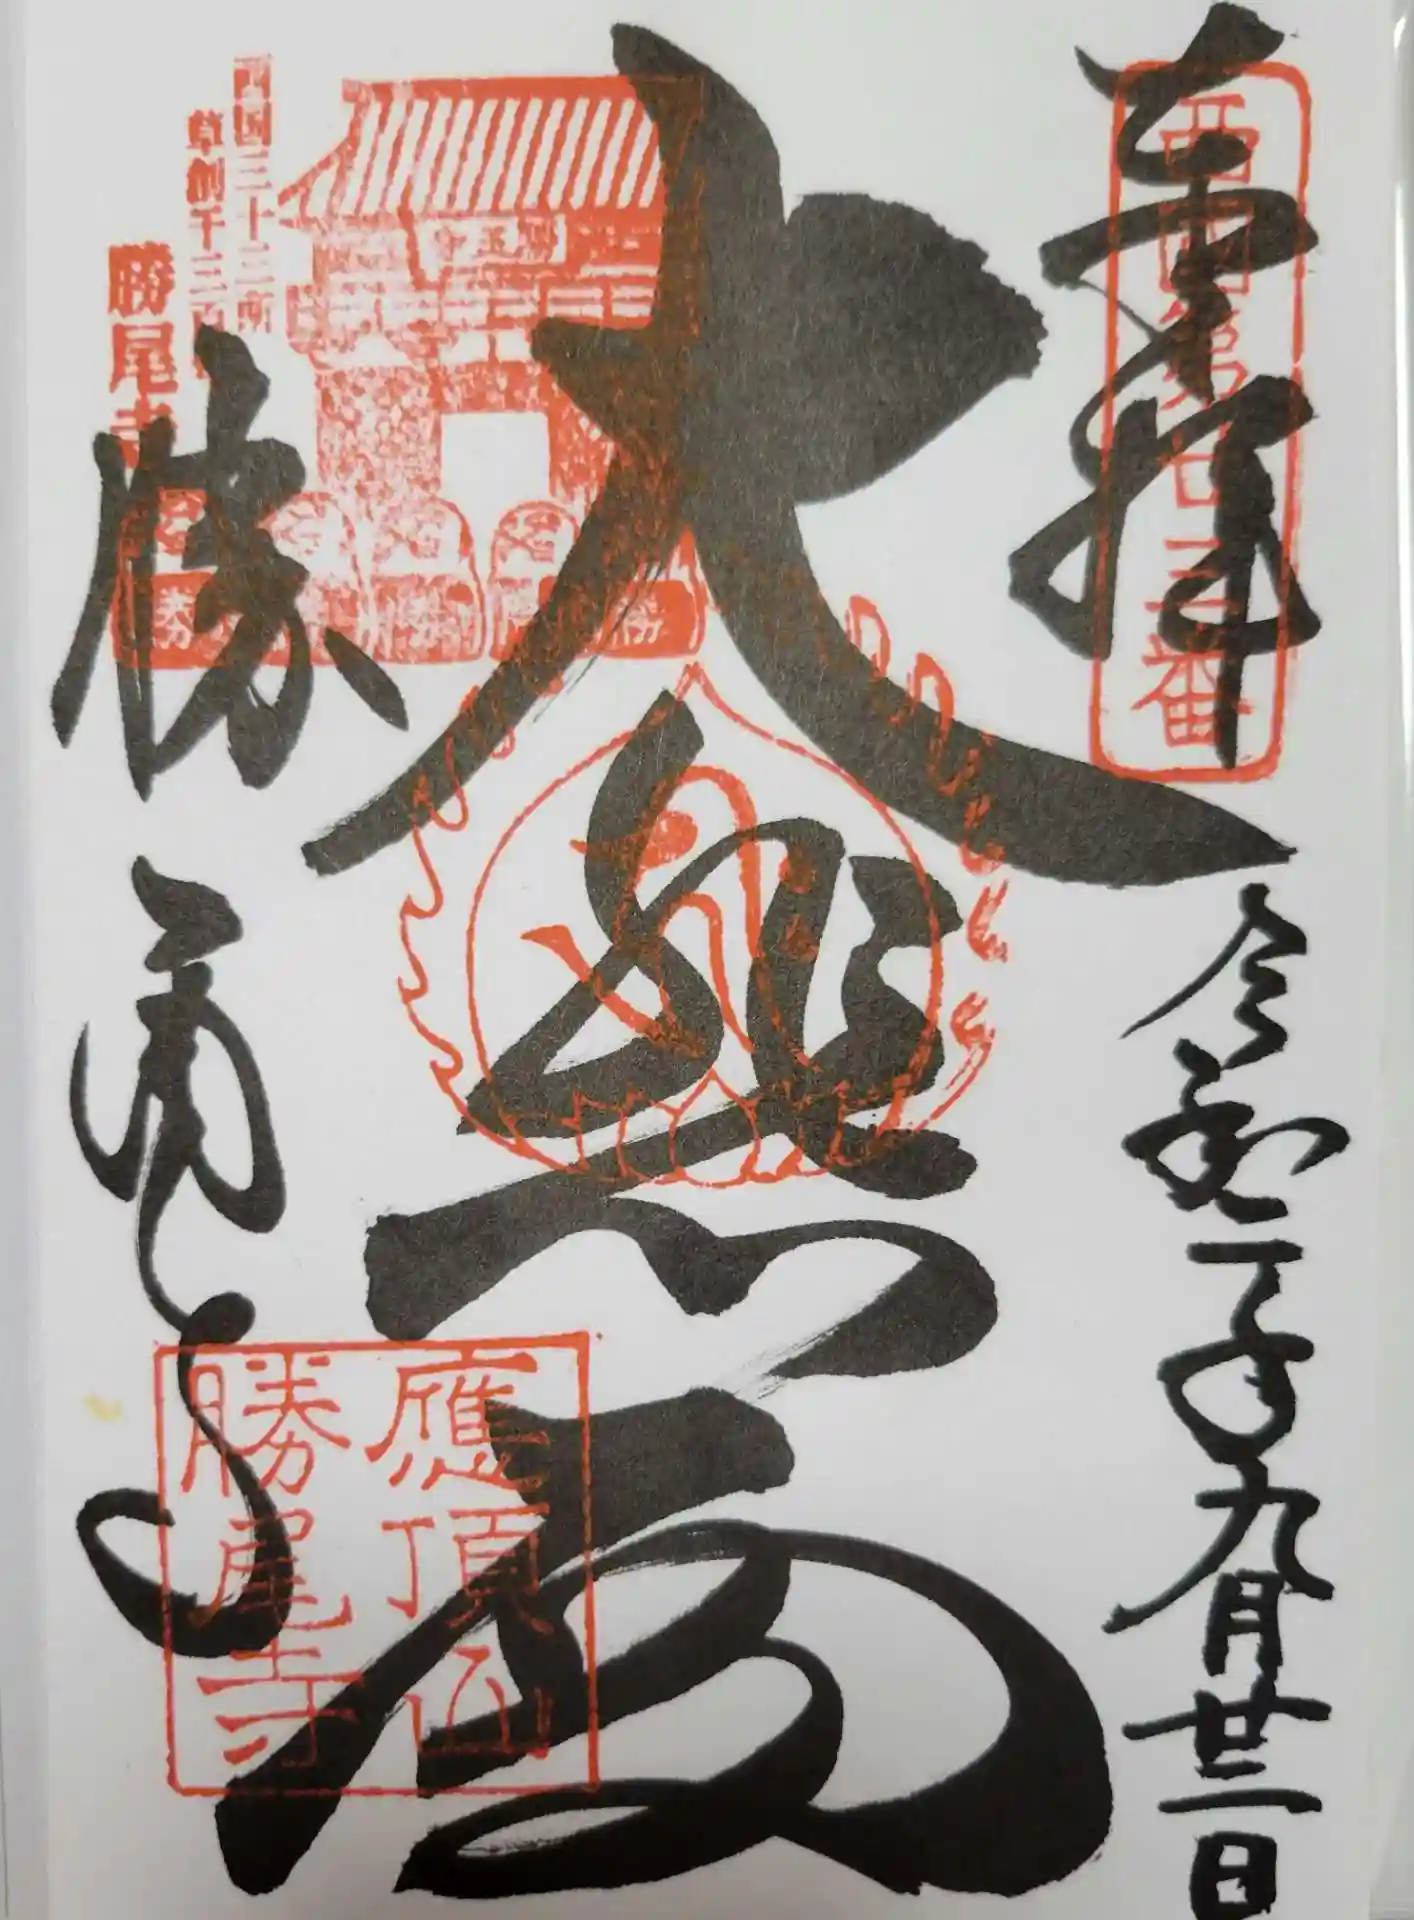 奉拝
西國第廿三番
令和二年九月廿二日
大悲
西国三十三所
草創千三百年
勝尾寺
勝
勝
勝
勝尾寺
應頂山
勝尾寺